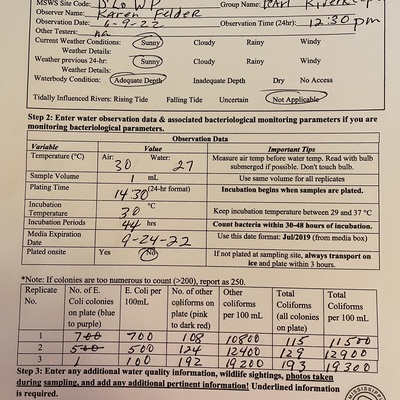 MSWS Site Code: D'Lo WP Group Name: Pearl Riverkeeper
Observer Name: Karen Felder
Observation Date: 6-9-22 Observation Time (24hr): 12:30 pm
Other Testers: na
Current Weather Conditions: Sunny Cloudy Rainy Windy
Weather Details:
Weather previous 24-hr: Sunny Cloudy Rainy Windy
Weather Details:
Waterbody Condition: Adequate Depth Inadequate Depth Dry No Access
Tidally Influenced Rivers: Rising Tide Falling Tide Uncertain Not Applicable
Step 2: Enter water observation data & associated bacteriological monitoring parameters if you are
monitoring bacteriological parameters.
Observation Data
Variable Value Important Tips
Temperature (°C) Air: 30 Water: 27 Measure air temp before water temp. Read with bulb
submerged if possible. Don't touch bulb.
Sample Volume 1 mL Use same volume for all replicates
Plating Time 1430 (24-hr format) Incubation begins when samples are plated.
Incubation
Temperature 30 °C Keep incubation temperature between 29 and 37 °C
Incubation Periods 44 hrs Count bacteria within 30-48 hours of incubation.
Media Expiration
Date 9-24-22 Use this date format: Jul/2019 (from media box)
Plated onsite Yes No If not plated at sampling site, always transport on
ice and plate within 3 hours.
*Note: If colonies are too numerous to count (>200), report as 250.
Replicate No. of E. E. Coli per No. of other Other Total Total
No. Coli colonies 100mL coliforms on coliforms Coliforms Coliforms
on plate (blue plate (pink per 100 mL (all colonies per 100 mL
to purple) to dark red) on plate)
1 700 700 108 10800 115 11500
2 500 500 124 12400 129 12900
3 1 100 192 19200 193 19300
Step 3: Enter any additional water quality information, wildlife sightings, photos taken
during sampling, and add any additional pertinent information! Underlined information
is required.